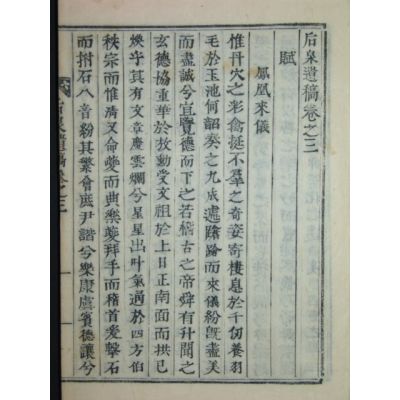 后泉遺稿卷之三
賦
鳳凰來儀
惟丹穴之彩禽挺不羣之奇姿寄棲息於千仞養羽
毛於玉池何韶奏之九成遽蹌蹌而來儀紛旣盡美
而盡誠兮宜覽德而下之若稽古之帝舜有升聞之
玄德協重華於放勳受文祖於上日正南面而拱已
煥乎其有文章慶雲爛兮星星出叶氣通於四方伯
秩宗而惟淸又命夔而典樂夔拜手而稽首爰擊石
而拊石八音紛其繁會庶尹諧兮樂康虞賓德讓兮
后泉遺稿卷之三 一